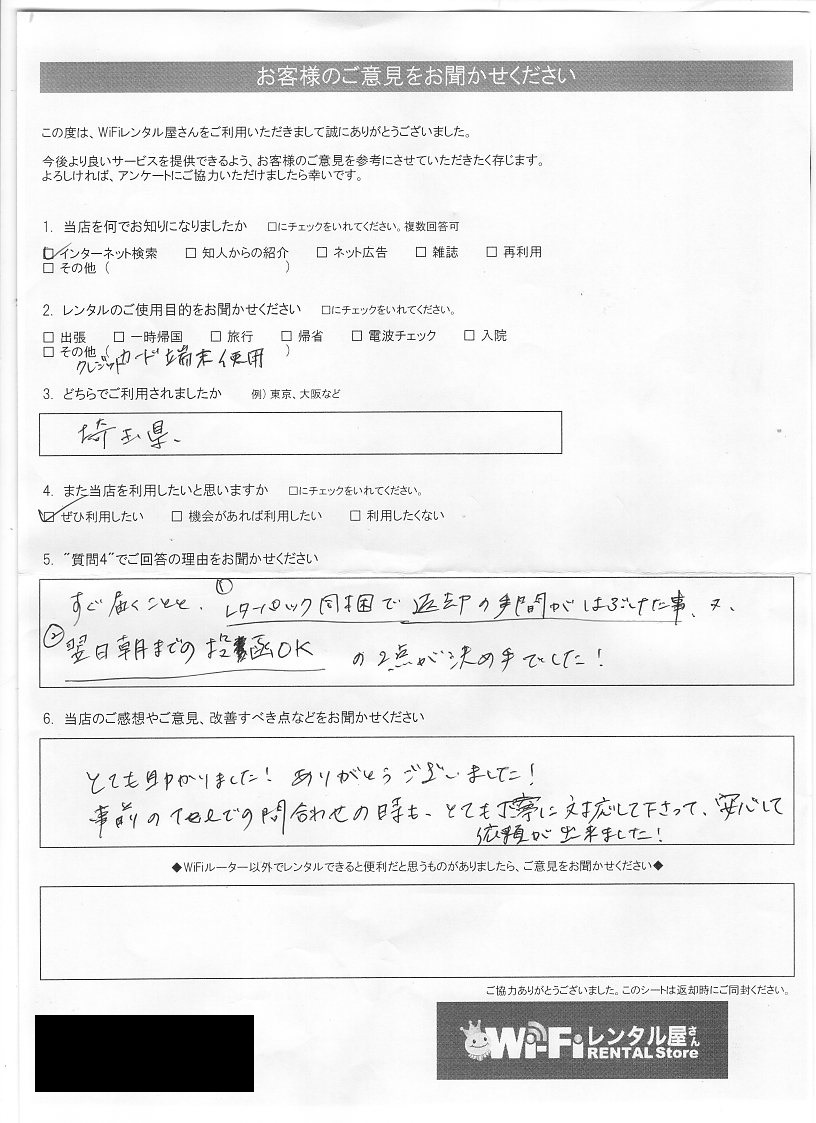 お客様のご意見をお聞かせください
この度は、WiFiレンタル屋さんをご利用いただきまして誠にありがとうございました。
今後より良いサービスを提供できるよう、お客様のご意見を参考にさせていただきたく存じます。
よろしければ、アンケートにご協力いただけましたら幸いです。
1. 当店を何でお知りになりましたか □にチェックをいれてください。複数回答可
☑ インターネット検索 □ 知人からの紹介 □ ネット広告 □ 雑誌 □ 再利用
□ その他 ( )
2. レンタルのご使用目的をお聞かせください □にチェックをいれてください。
□ 出張 □ 一時帰国 □ 旅行 □ 帰省 □ 電波チェック □ 入院
□ その他 ( )
クレジットカード端末使用
3. どちらでご利用されましたか 例) 東京、大阪など
埼玉県、
4. また当店を利用したいと思いますか □にチェックをいれてください。
☑ ぜひ利用したい □ 機会があれば利用したい □ 利用したくない
5. "質問4"でご回答の理由をお聞かせください
すぐ届くことと、①レターパック同梱で返却の手間がはぶけた事、又、
②翌日朝までの投函OK の2点が決め手でした!
6. 当店のご感想やご意見、改善すべき点などをお聞かせください
とても助かりました! ありがとうございました!
事前のTelでの問合わせの時も、とても丁寧に対応して下さって、安心して
依頼が出来ました!
◆WiFiルーター以外でレンタルできると便利だと思うものがありましたら、ご意見をお聞かせください◆
ご協力ありがとうございました。このシートは返却時にご同封ください。
Wi-Fiレンタル屋さん
RENTAL Store